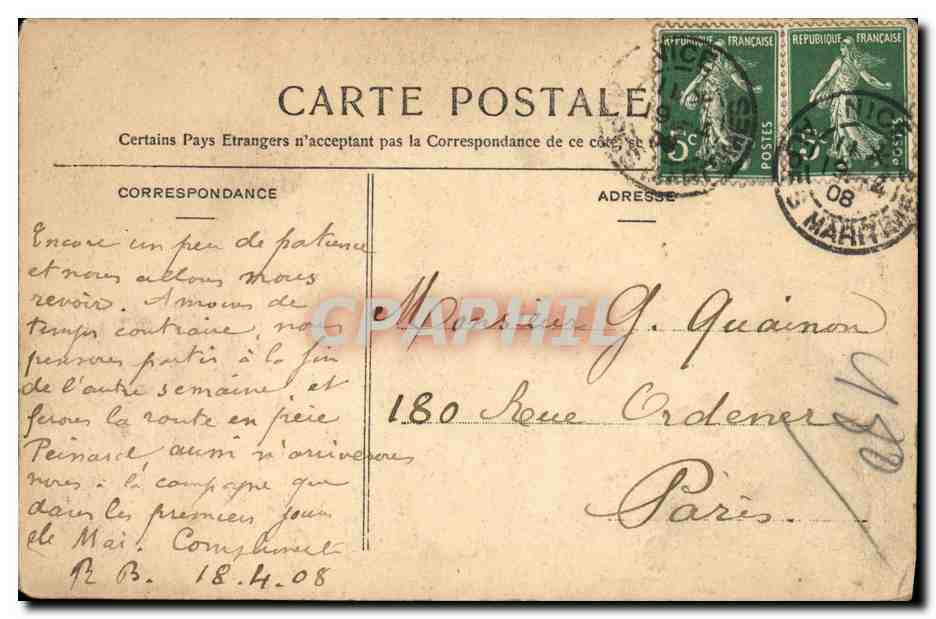 CARTE POSTALE
Certains Pays Etrangers n'acceptant pas la Correspondance de ce côté, se
RÉPUBLIQUE FRANÇAISE
5c POSTES
REPUBLIQUE FRANÇAISE
5c POSTES
NICE
NICE
08
MARITIMES
CORRESPONDANCE
Encore un peu de patience
et nous allons nous
revoir. A moins de
temps contraire, nous
pensons partir à la fin
de l'autre semaine et
ferons la route en père
Peinard, aussi n'arriverons
nous à la campagne que
dans les premiers jours
de Mai. Compliments
R B. 18.4.08
ADRESSE
Monsieur G. Quainon
180 Rue Ordener
Paris.
180
CPAPHIL